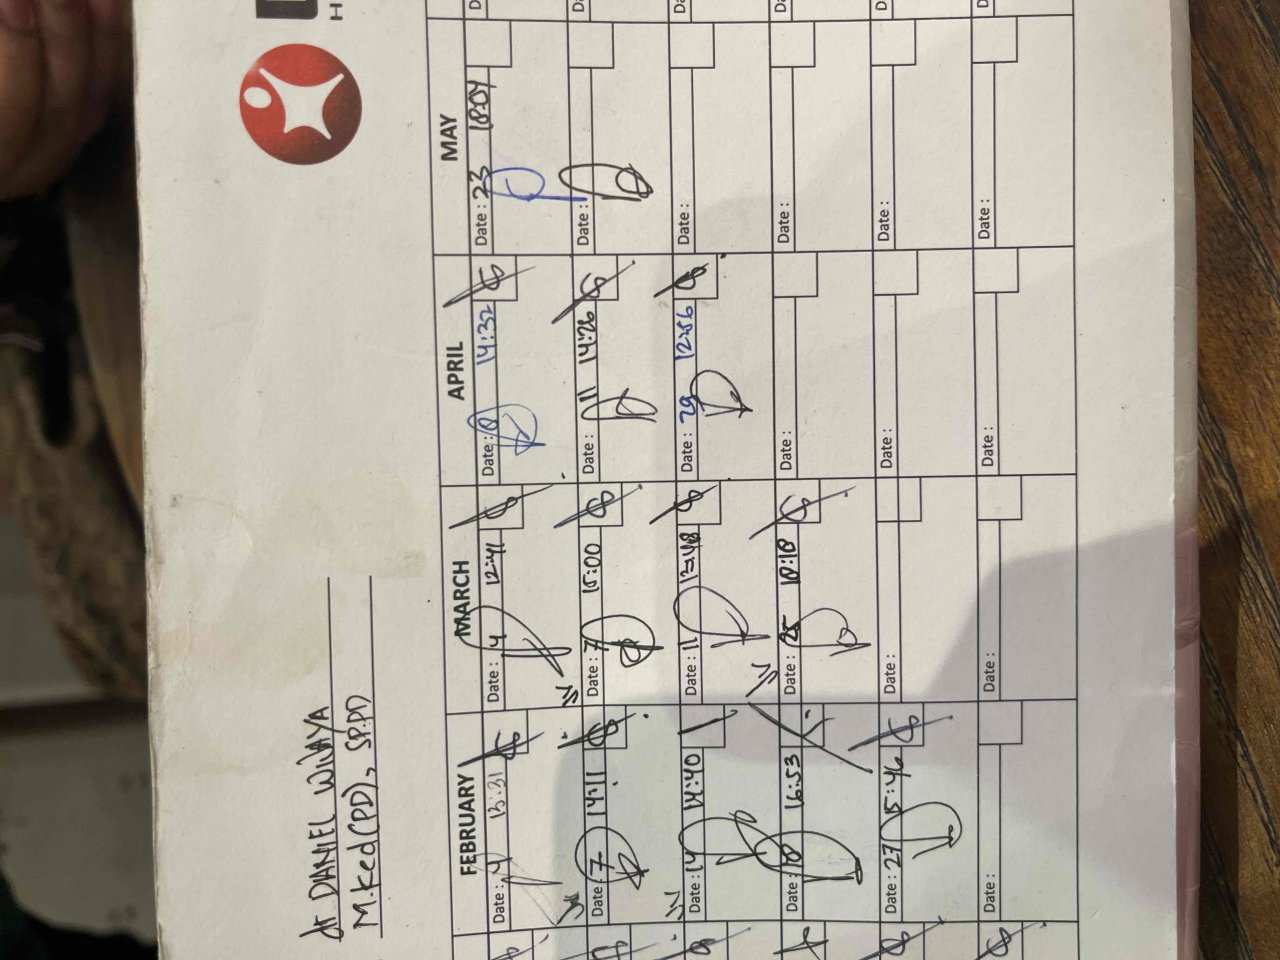 dr DANIEL WIJAYA
M.Ked(PD), SP.PD
FEBRUARY MARCH APRIL MAY
Date: 4 13:31 Date: 4 12:41 Date: 8 14:32 Date: 23 18:04
Date: 7 14:11 Date: 7 15:00 Date: 11 14:26 Date:
Date: 14 14:40 Date: 11 Date: 29 12:56 Date:
Date: 18 16:53 Date: 25 18:18 Date: Date:
Date: 27 15:46 Date: Date: Date:
Date: Date: Date: Date: